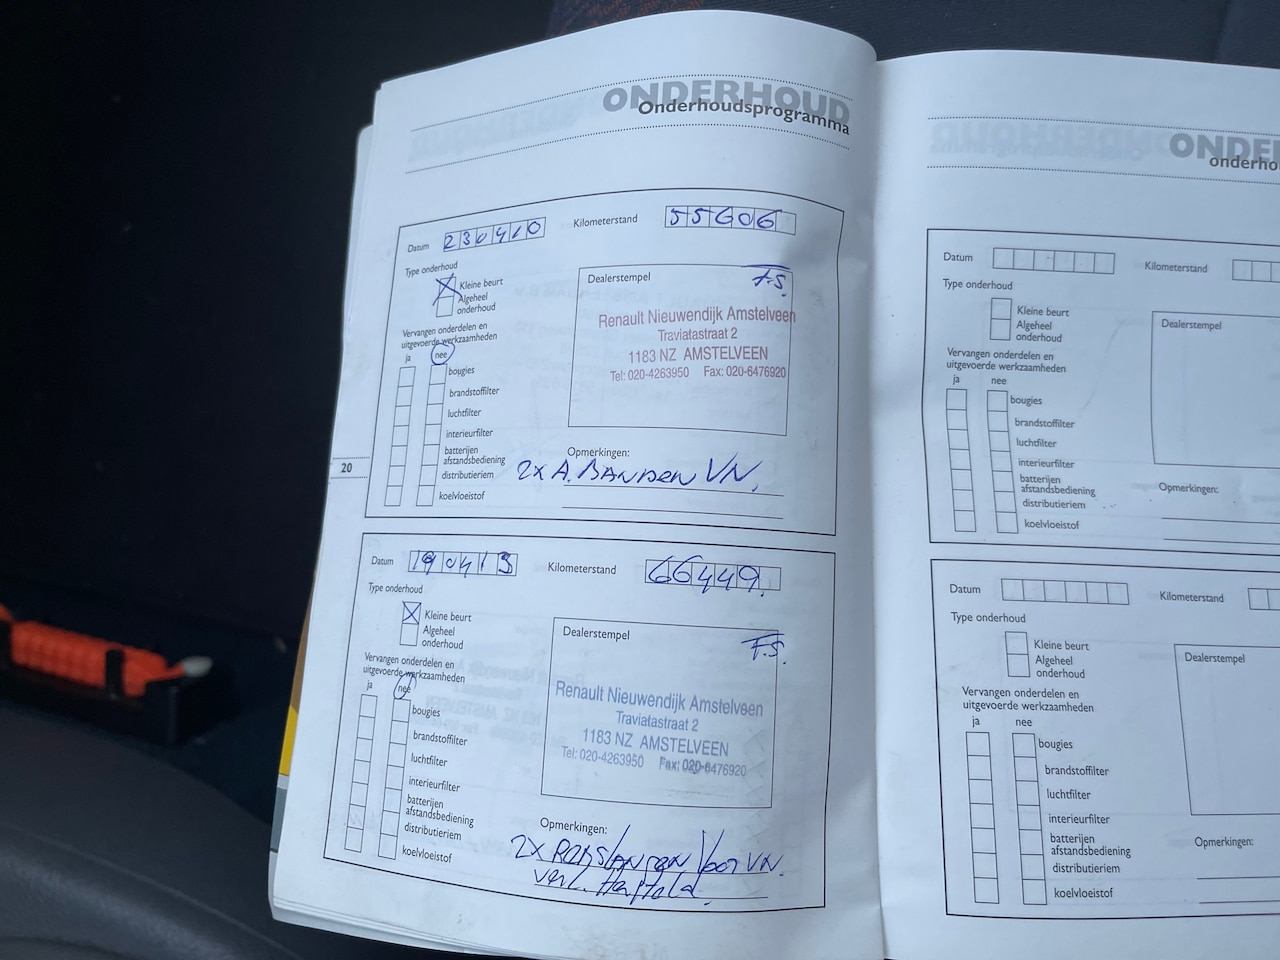 ONDERHOUD
Onderhoudsprogramma
Datum 230410 Kilometerstand 55606
Type onderhoud
Kleine beurt
Algeheel
onderhoud
Vervangen onderdelen en
uitgevoerde werkzaamheden
ja nee
bougies
brandstoffilter
luchtfilter
interieurfilter
batterijen
afstandsbediening
distributieriem
koelvloeistof
Dealerstempel
F.S.
Renault Nieuwendijk Amstelveen
Traviatastraat 2
1183 NZ AMSTELVEEN
Tel: 020-4263950 Fax: 020-6476920
Opmerkingen:
2x A. BANDEN VN.
20
Datum 190413 Kilometerstand 66449.
Type onderhoud
Kleine beurt
Algeheel
onderhoud
Vervangen onderdelen en
uitgevoerde werkzaamheden
ja nee
bougies
brandstoffilter
luchtfilter
interieurfilter
batterijen
afstandsbediening
distributieriem
koelvloeistof
Dealerstempel
F.S.
Renault Nieuwendijk Amstelveen
Traviatastraat 2
1183 NZ AMSTELVEEN
Tel: 020-4263950 Fax: 020-6476920
Opmerkingen:
2x VN.
ONDE
onderho
Datum Kilometerstand
Type onderhoud
Kleine beurt
Algeheel
onderhoud
Vervangen onderdelen en
uitgevoerde werkzaamheden
ja nee
bougies
brandstoffilter
luchtfilter
interieurfilter
batterijen
afstandsbediening
distributieriem
koelvloeistof
Dealerstempel
Opmerkingen:
Datum Kilometerstand
Type onderhoud
Kleine beurt
Algeheel
onderhoud
Vervangen onderdelen en
uitgevoerde werkzaamheden
ja nee
bougies
brandstoffilter
luchtfilter
interieurfilter
batterijen
afstandsbediening
distributieriem
koelvloeistof
Dealerstempel
Opmerkingen: